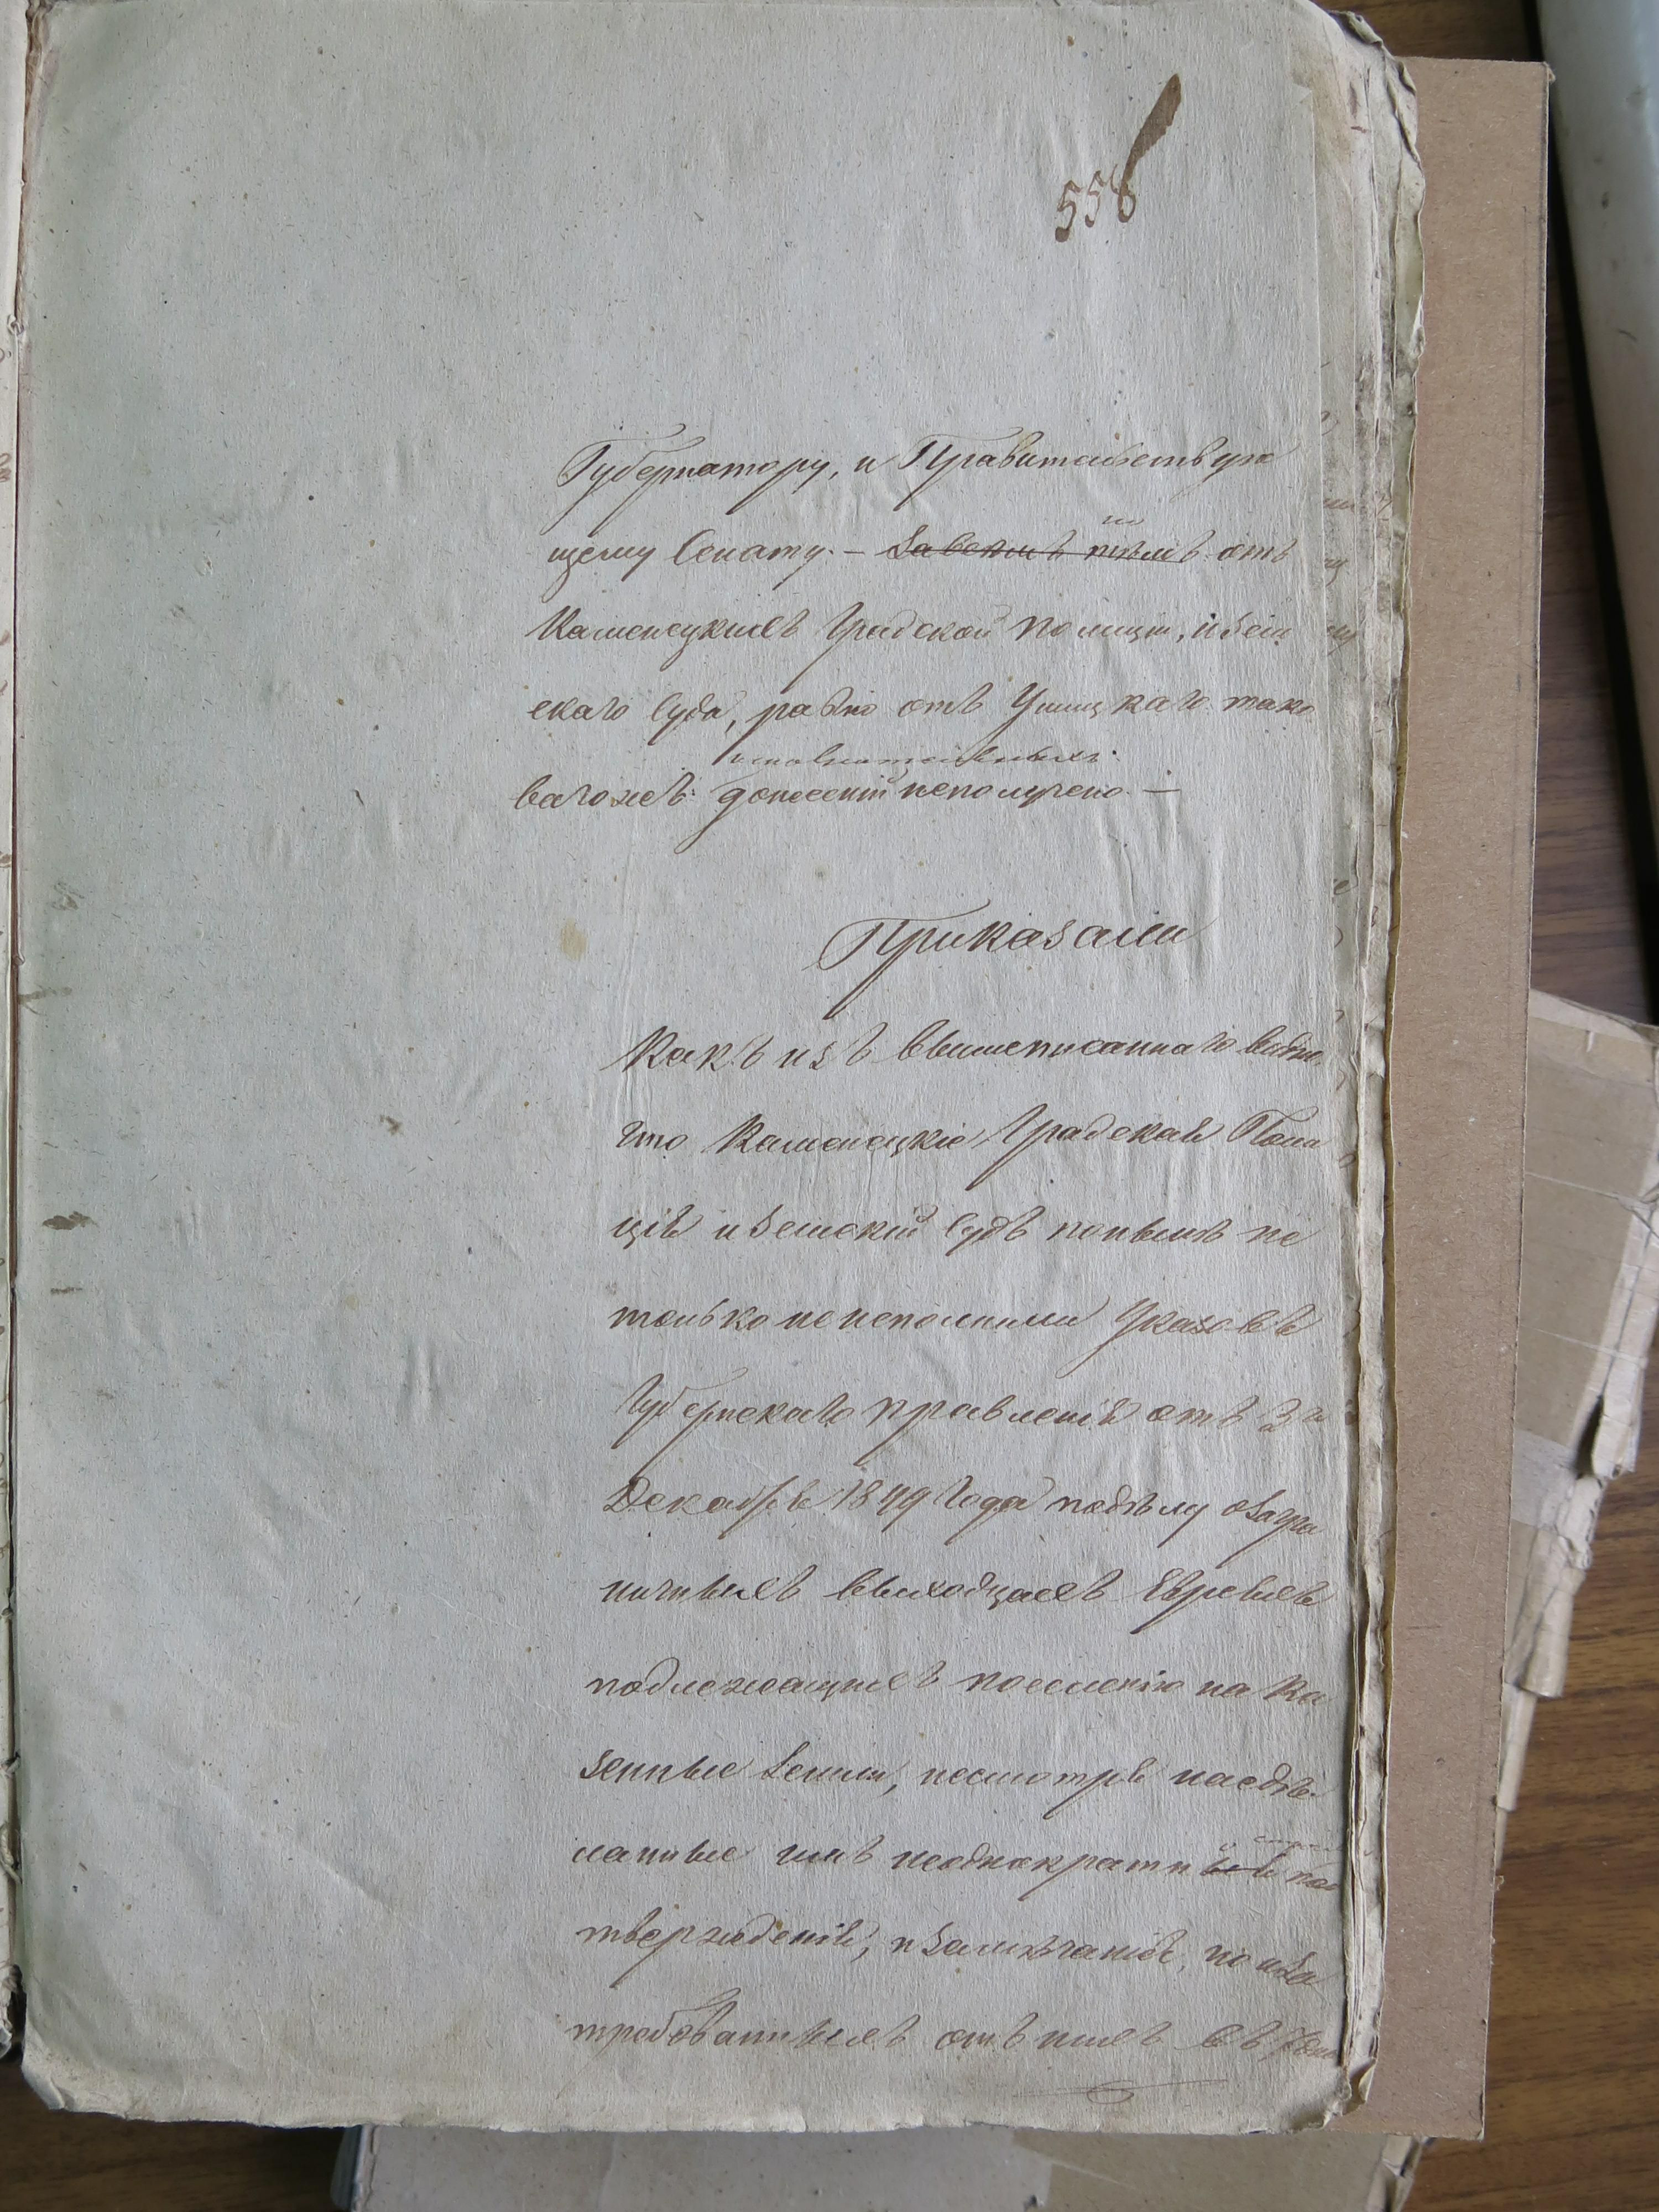 558
Губернатору, и Правительствую
щему Сенату. — <s>За всѣмъ тѣмъ</s> но отъ
Каменецкихъ Градской полиціи, и Зем
скаго Суда, равно отъ Ушицкаго тако
исполнительныхъ
вагожъ донесеній неполучено. —
Приказали
Какъ изъ вышеписаннаго видно,
что Каменецкіе Градская Поли
ція и Земскій Судъ понынѣ не
только не исполнили Указовъ
Губернскаго правленія отъ
Декабря 1849 года подѣлу оЗагра
ничныхъ выходцахъ Евреяхъ
подлежащихъ поселенію на Ка
зенные Земли, несмотря насдѣ
ланные имъ неоднократн под
твержденія, и замѣчанія, но иЗа
требованныхъ отъ нихъ въ